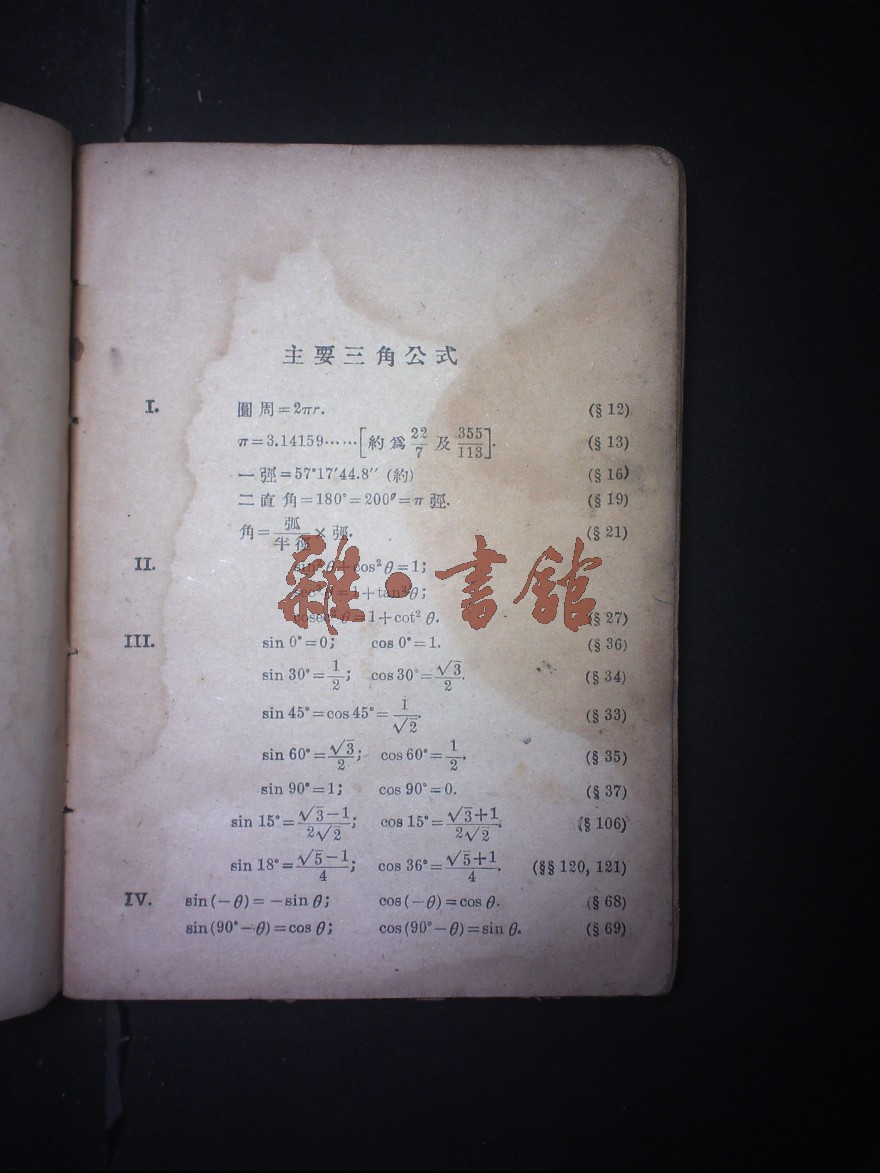 主要三角公式
I. 圓周=2πr. (§ 12)
π=3.14159……[約爲 22/7 及 355/113]. (§ 13)
一弳=57°17′44.8″ (約) (§ 16)
二直角=180°=200ᵍ=π 弳. (§ 19)
角=弧/半徑× 弳. (§ 21)
II. sin² θ+cos² θ=1;
sec² θ=1+tan² θ;
cosec² θ=1+cot² θ. (§ 27)
III. sin 0°=0; cos 0°=1. (§ 36)
sin 30°=1/2; cos 30°=√3/2. (§ 34)
sin 45°=cos 45°=1/√2. (§ 33)
sin 60°=√3/2; cos 60°=1/2. (§ 35)
sin 90°=1; cos 90°=0. (§ 37)
sin 15°=√3−1/2√2; cos 15°=√3+1/2√2. (§ 106)
sin 18°=√5−1/4; cos 36°=√5+1/4. (§§ 120, 121)
IV. sin(−θ)=−sin θ; cos(−θ)=cos θ. (§ 68)
sin(90°−θ)=cos θ; cos(90°−θ)=sin θ. (§ 69)
雜·書館